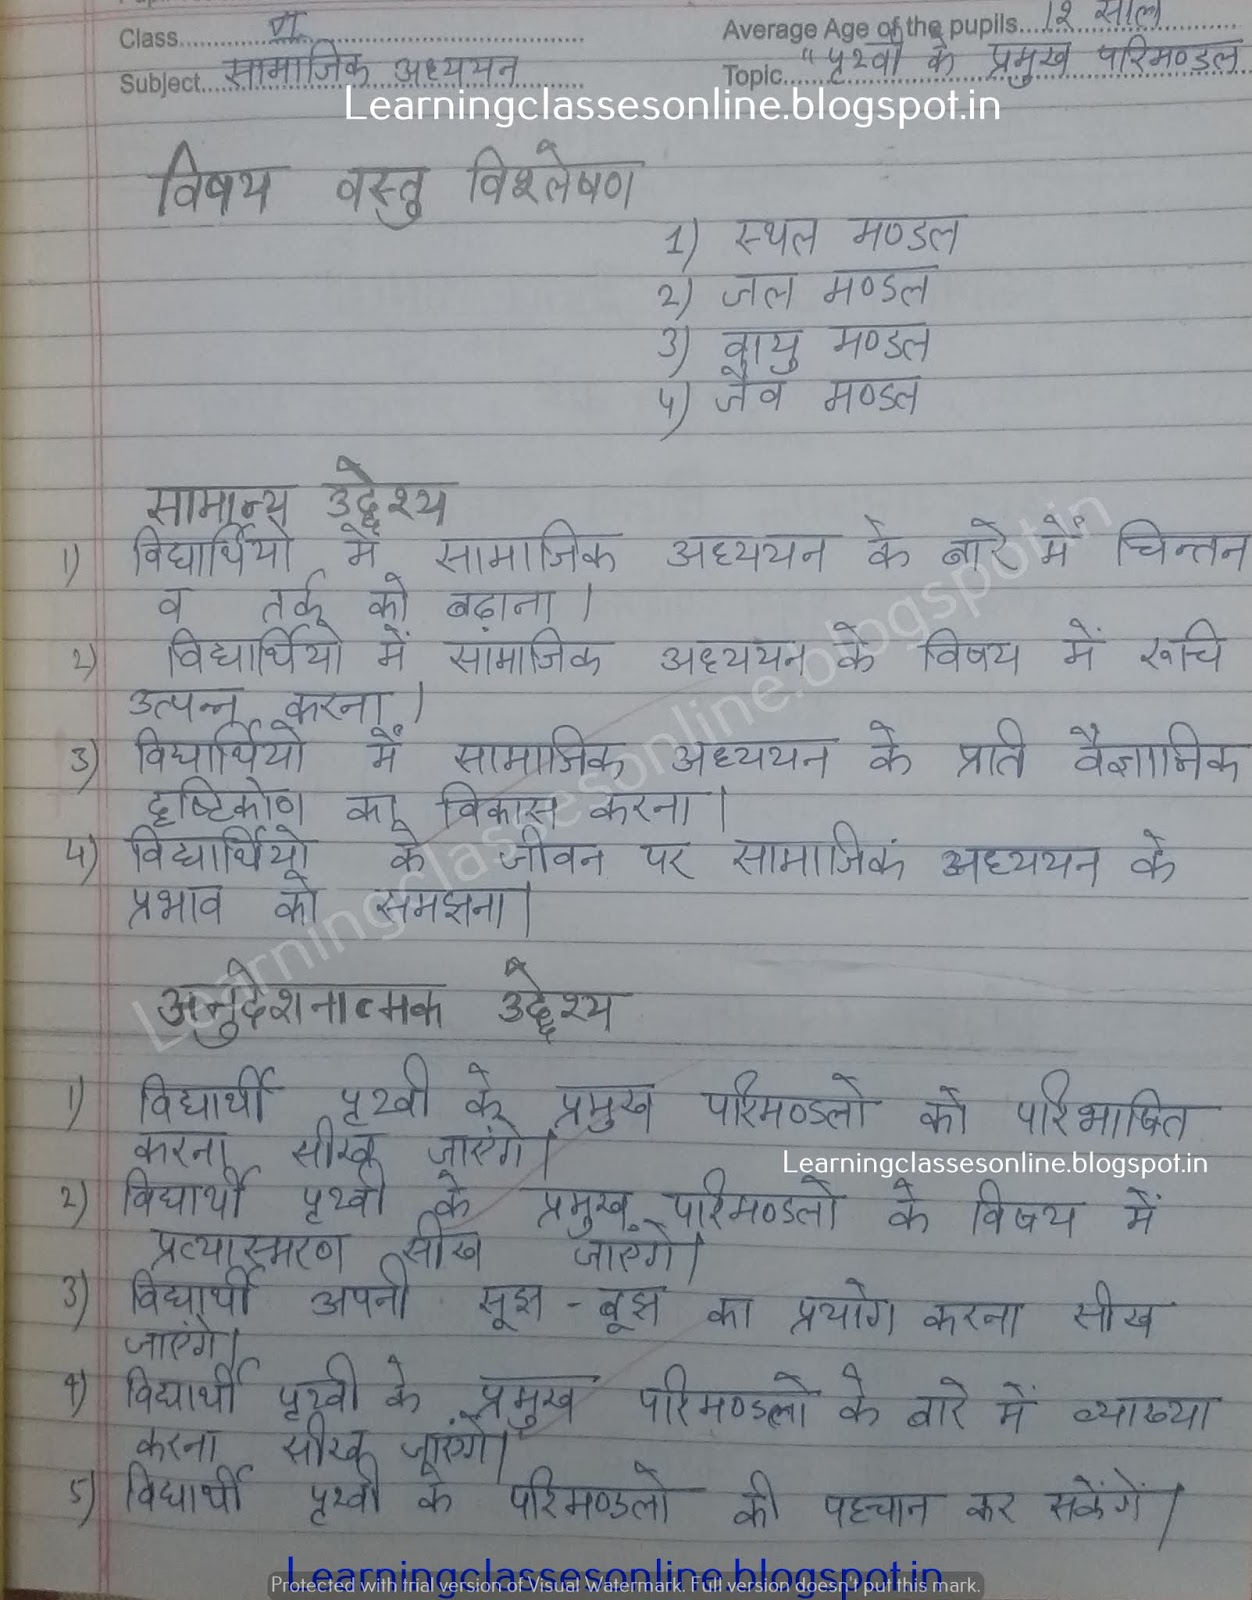 Class.......... VI
Average Age of the pupils...12 साल
Subject...सामाजिक अध्ययन
Topic...."पृथ्वी के प्रमुख परिमण्डल
Learningclassesonline.blogspot.in
विषय वस्तु विश्लेषण
1) स्थल मण्डल
2) जल मण्डल
3) वायु मण्डल
4) जैव मण्डल
सामान्य उद्देश्य
1) विद्यार्थियो में सामाजिक अध्ययन के बारे में चिन्तन
व तर्क को बढ़ाना।
2) विद्यार्थियो में सामाजिक अध्ययन के विषय में रूचि
उत्पन्न करना।
3) विद्यार्थियो में सामाजिक अध्ययन के प्रति वैज्ञानिक
दृष्टिकोण का विकास करना।
4) विद्यार्थियो के जीवन पर सामाजिक अध्ययन के
प्रभाव को समझना।
Learningclassesonline.blogspot.in
अनुदेशनात्मक उद्देश्य
1) विद्यार्थी पृथ्वी के प्रमुख परिमण्डलो को परिभाषित
करना सीख जाएंगे।
Learningclassesonline.blogspot.in
2) विद्यार्थी पृथ्वी के प्रमुख परिमण्डलो के विषय में
प्रत्यास्मरण सीख जाएंगे।
3) विद्यार्थी अपनी सूझ - बूझ का प्रयोग करना सीख
जाएंगे।
4) विद्यार्थी पृथ्वी के प्रमुख परिमण्डलो के बारे में व्याख्या
करना सीख जाएंगे।
5) विद्यार्थी पृथ्वी के परिमण्डलो की पहचान कर सकेंगें।
Learningclassesonline.blogspot.in
Protected with trial version of Visual Watermark. Full version doesn't put this mark.